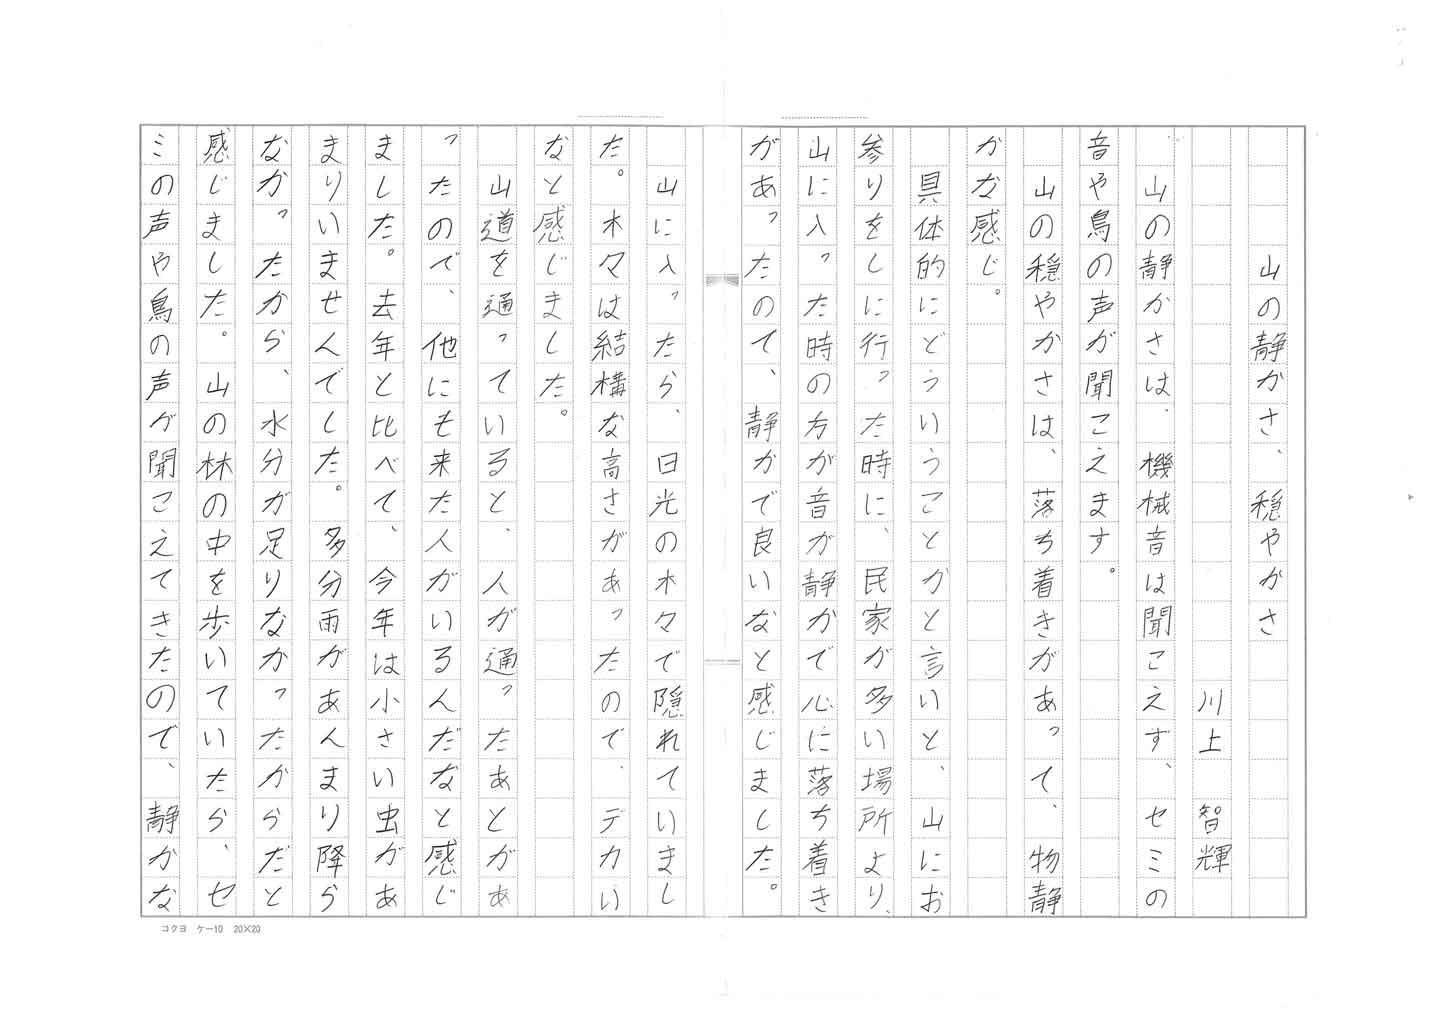 山の静かさ、穏やかさ
川上 智輝
山の静かさは、機械音は聞こえず、セミの
音や鳥の声が聞こえます。
山の穏やかさは、落ち着きがあって、物静
かな感じ。
具体的にどういうことかと言いと、山にお
参りをしに行った時に、民家が多い場所より、
山に入った時の方が音が静かで心に落ち着き
があったのて、静かで良いなと感じました。
山に入ったら、日光の木々で隠れていまし
た。木々は結構な高さがあったので、デカい
なと感じました。
山道を通っていると、人が通ったあとがあ
ったので、他にも来た人がいるんだなと感じ
ました。去年と比べて、今年は小さい虫があ
まりいませんでした。多分雨があんまり降ら
なかったから、水分が足りなかったからだと
感じました。山の林の中を歩いていたら、セ
ミの声や鳥の声が聞こえてきたので、静かな
コクヨ ケー10 20×20